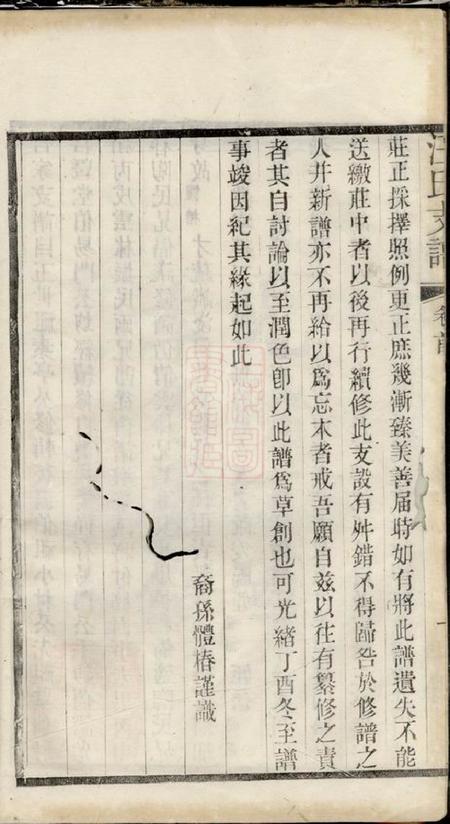 莊正採擇照例更正庶幾漸臻美善屆時如有將此譜遺失不能
送繳莊中者以後再行續修此支設有舛錯不得歸咎於修譜之
人幷新譜亦不再給以爲忘本者戒吾願自兹以往有纂修之責
者其自討論以至潤色卽以此譜爲草創也可光緒丁酉冬至譜
事竣因紀其緣起如此
裔孫體椿謹識
汪氏支譜
卷首